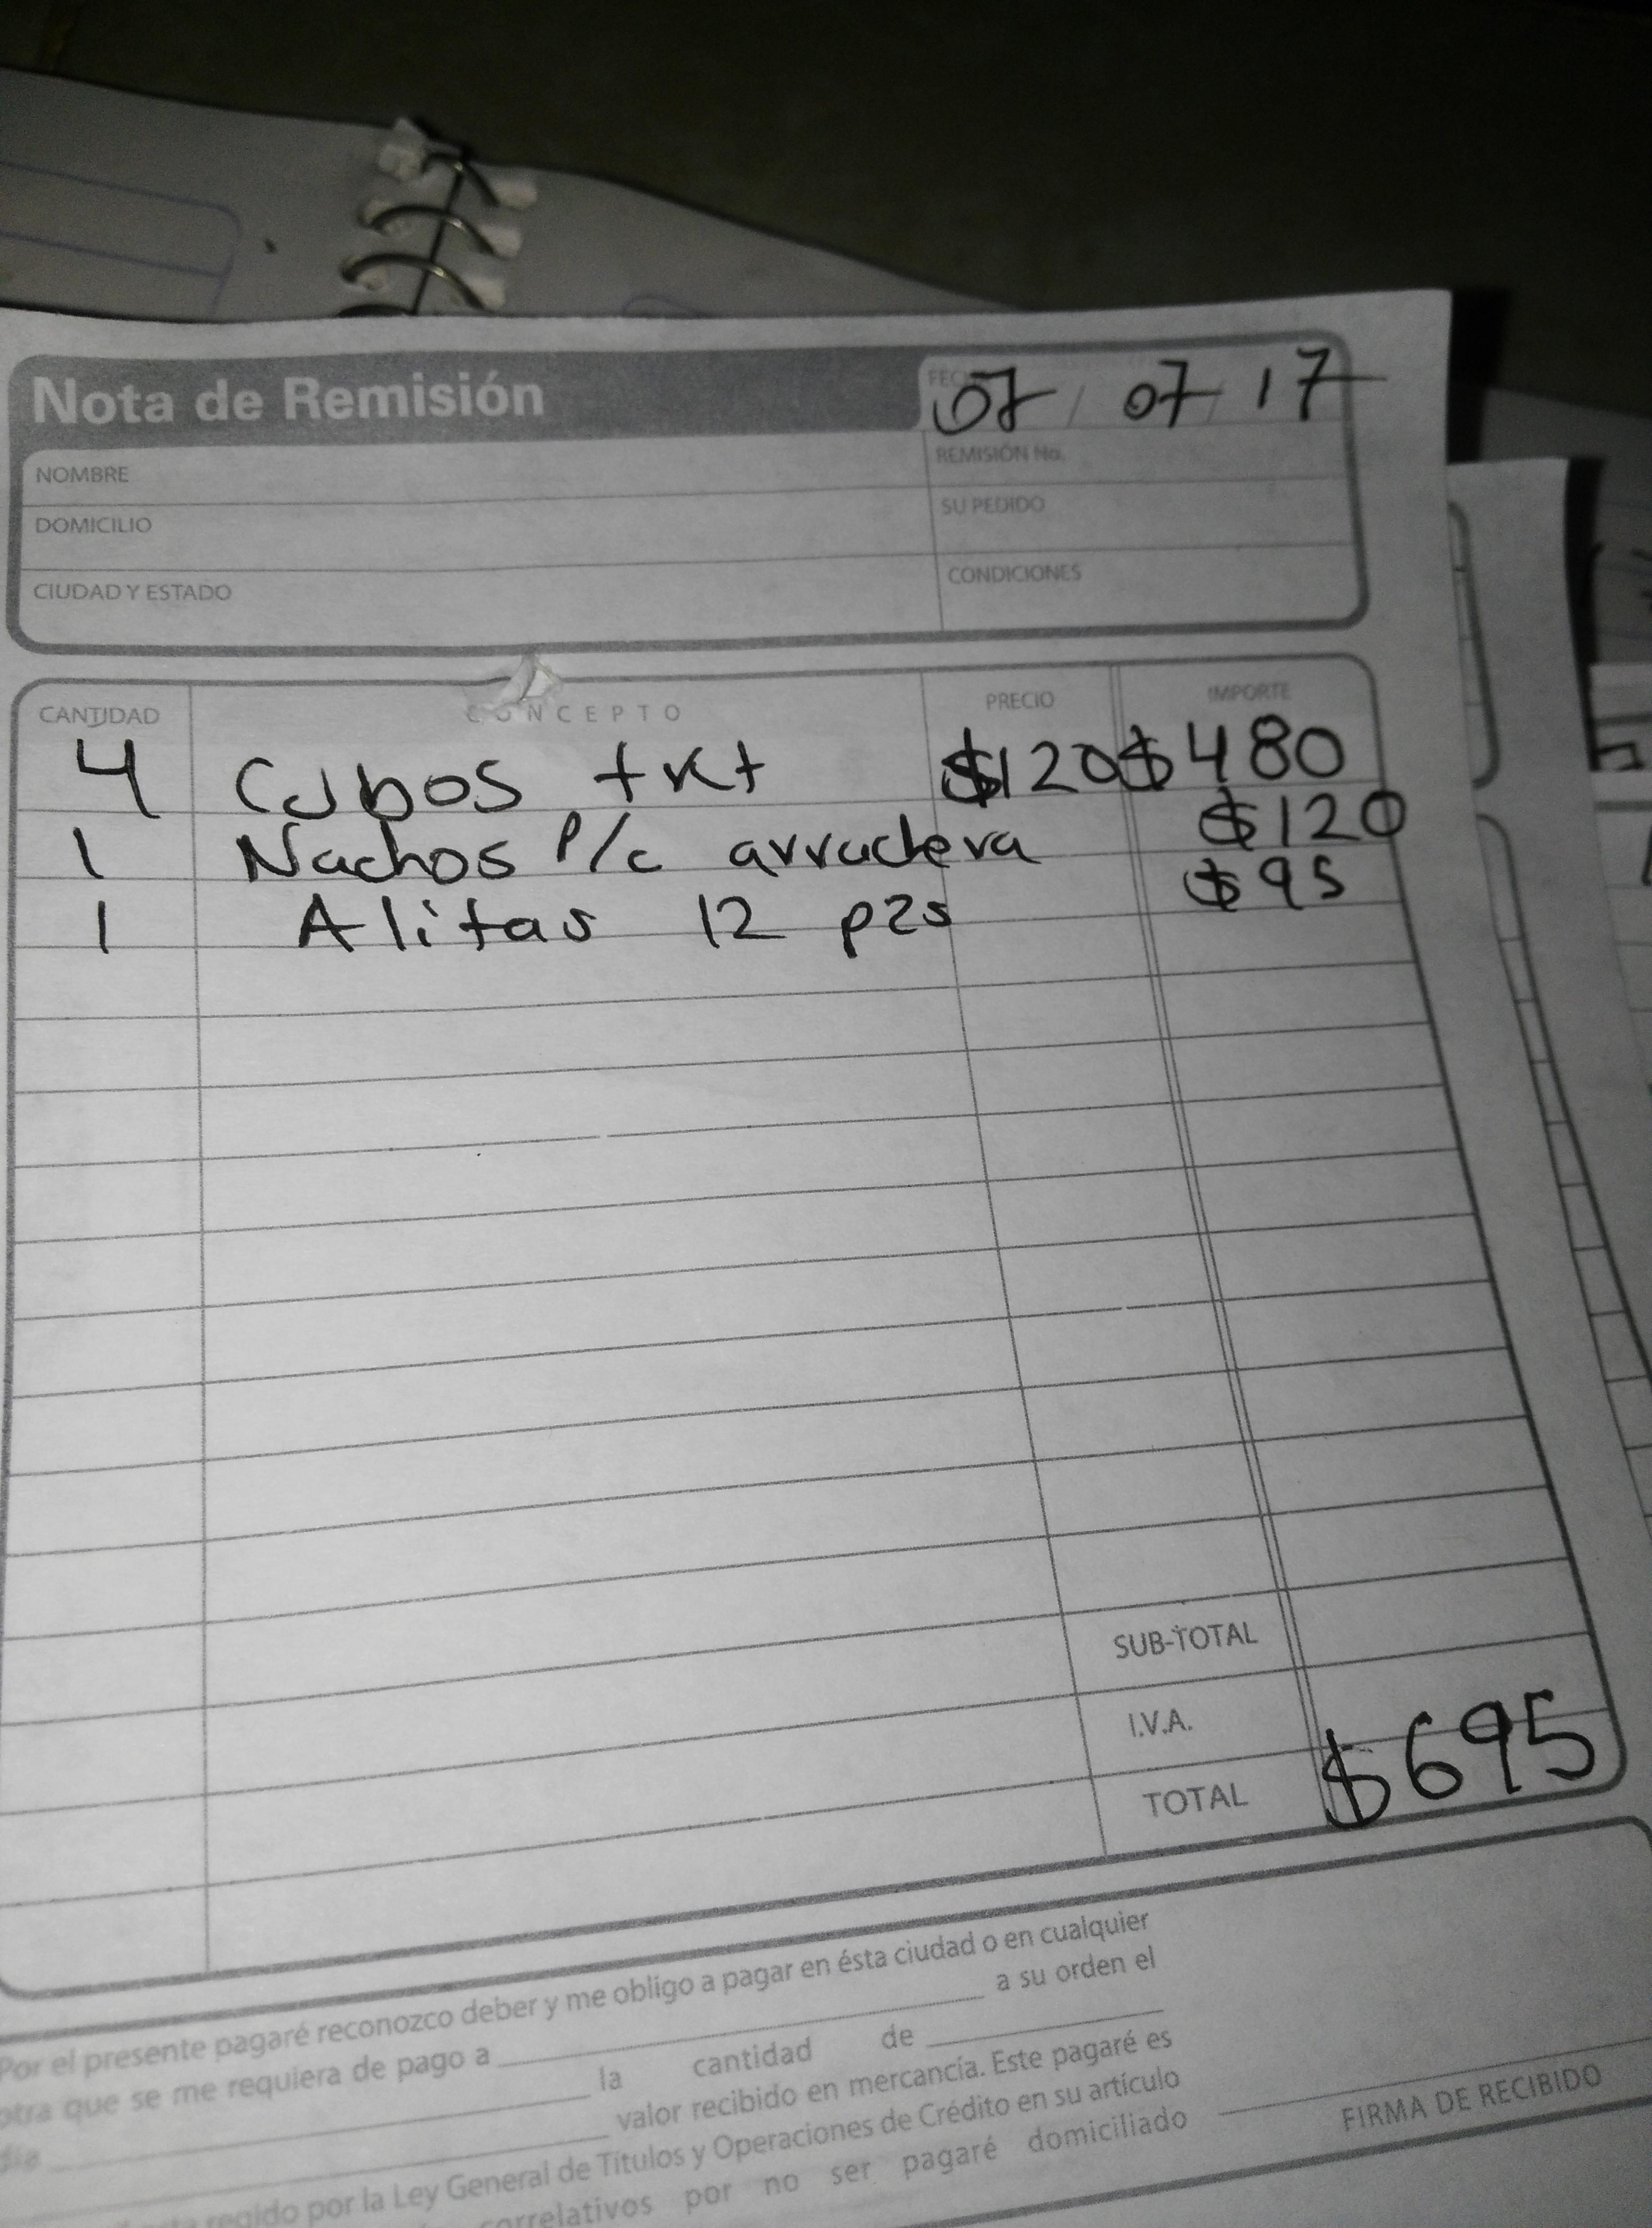 Nota de Remisión
FECHA 07 / 07 / 17
NOMBRE
REMISIÓN No.
DOMICILIO
SU PEDIDO
CIUDAD Y ESTADO
CONDICIONES
CANTIDAD CONCEPTO PRECIO IMPORTE
4 Cubos tkt $120 $480
1 Nachos P/c arrachera $120
1 Alitas 12 pzs $95
SUB-TOTAL
I.V.A.
TOTAL $695
Por el presente pagaré reconozco deber y me obligo a pagar en ésta ciudad o en cualquier
otra que se me requiera de pago a a su orden el
día la cantidad de
valor recibido en mercancía. Este pagaré es
regido por la Ley General de Títulos y Operaciones de Crédito en su artículo
correlativos por no ser pagaré domiciliado
FIRMA DE RECIBIDO